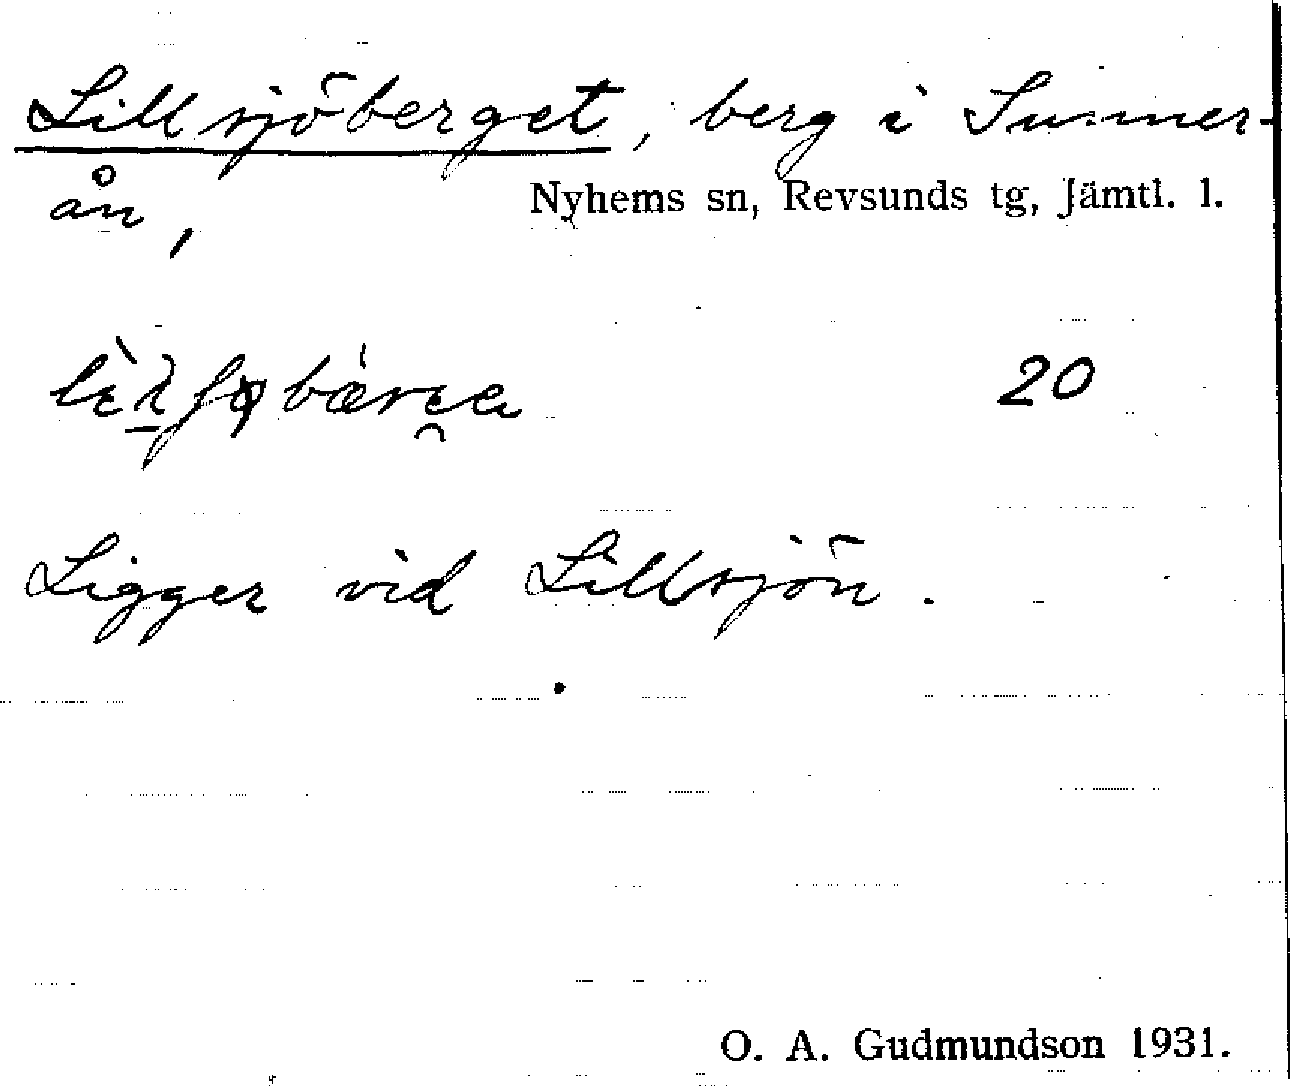 Lillsjöberget, berg i Summer-
ån,
Nyhems sn, Revsunds tg, Jämtl. l.
20
Ligger vid Lillsjön.
O. A. Gudmundson 1931.